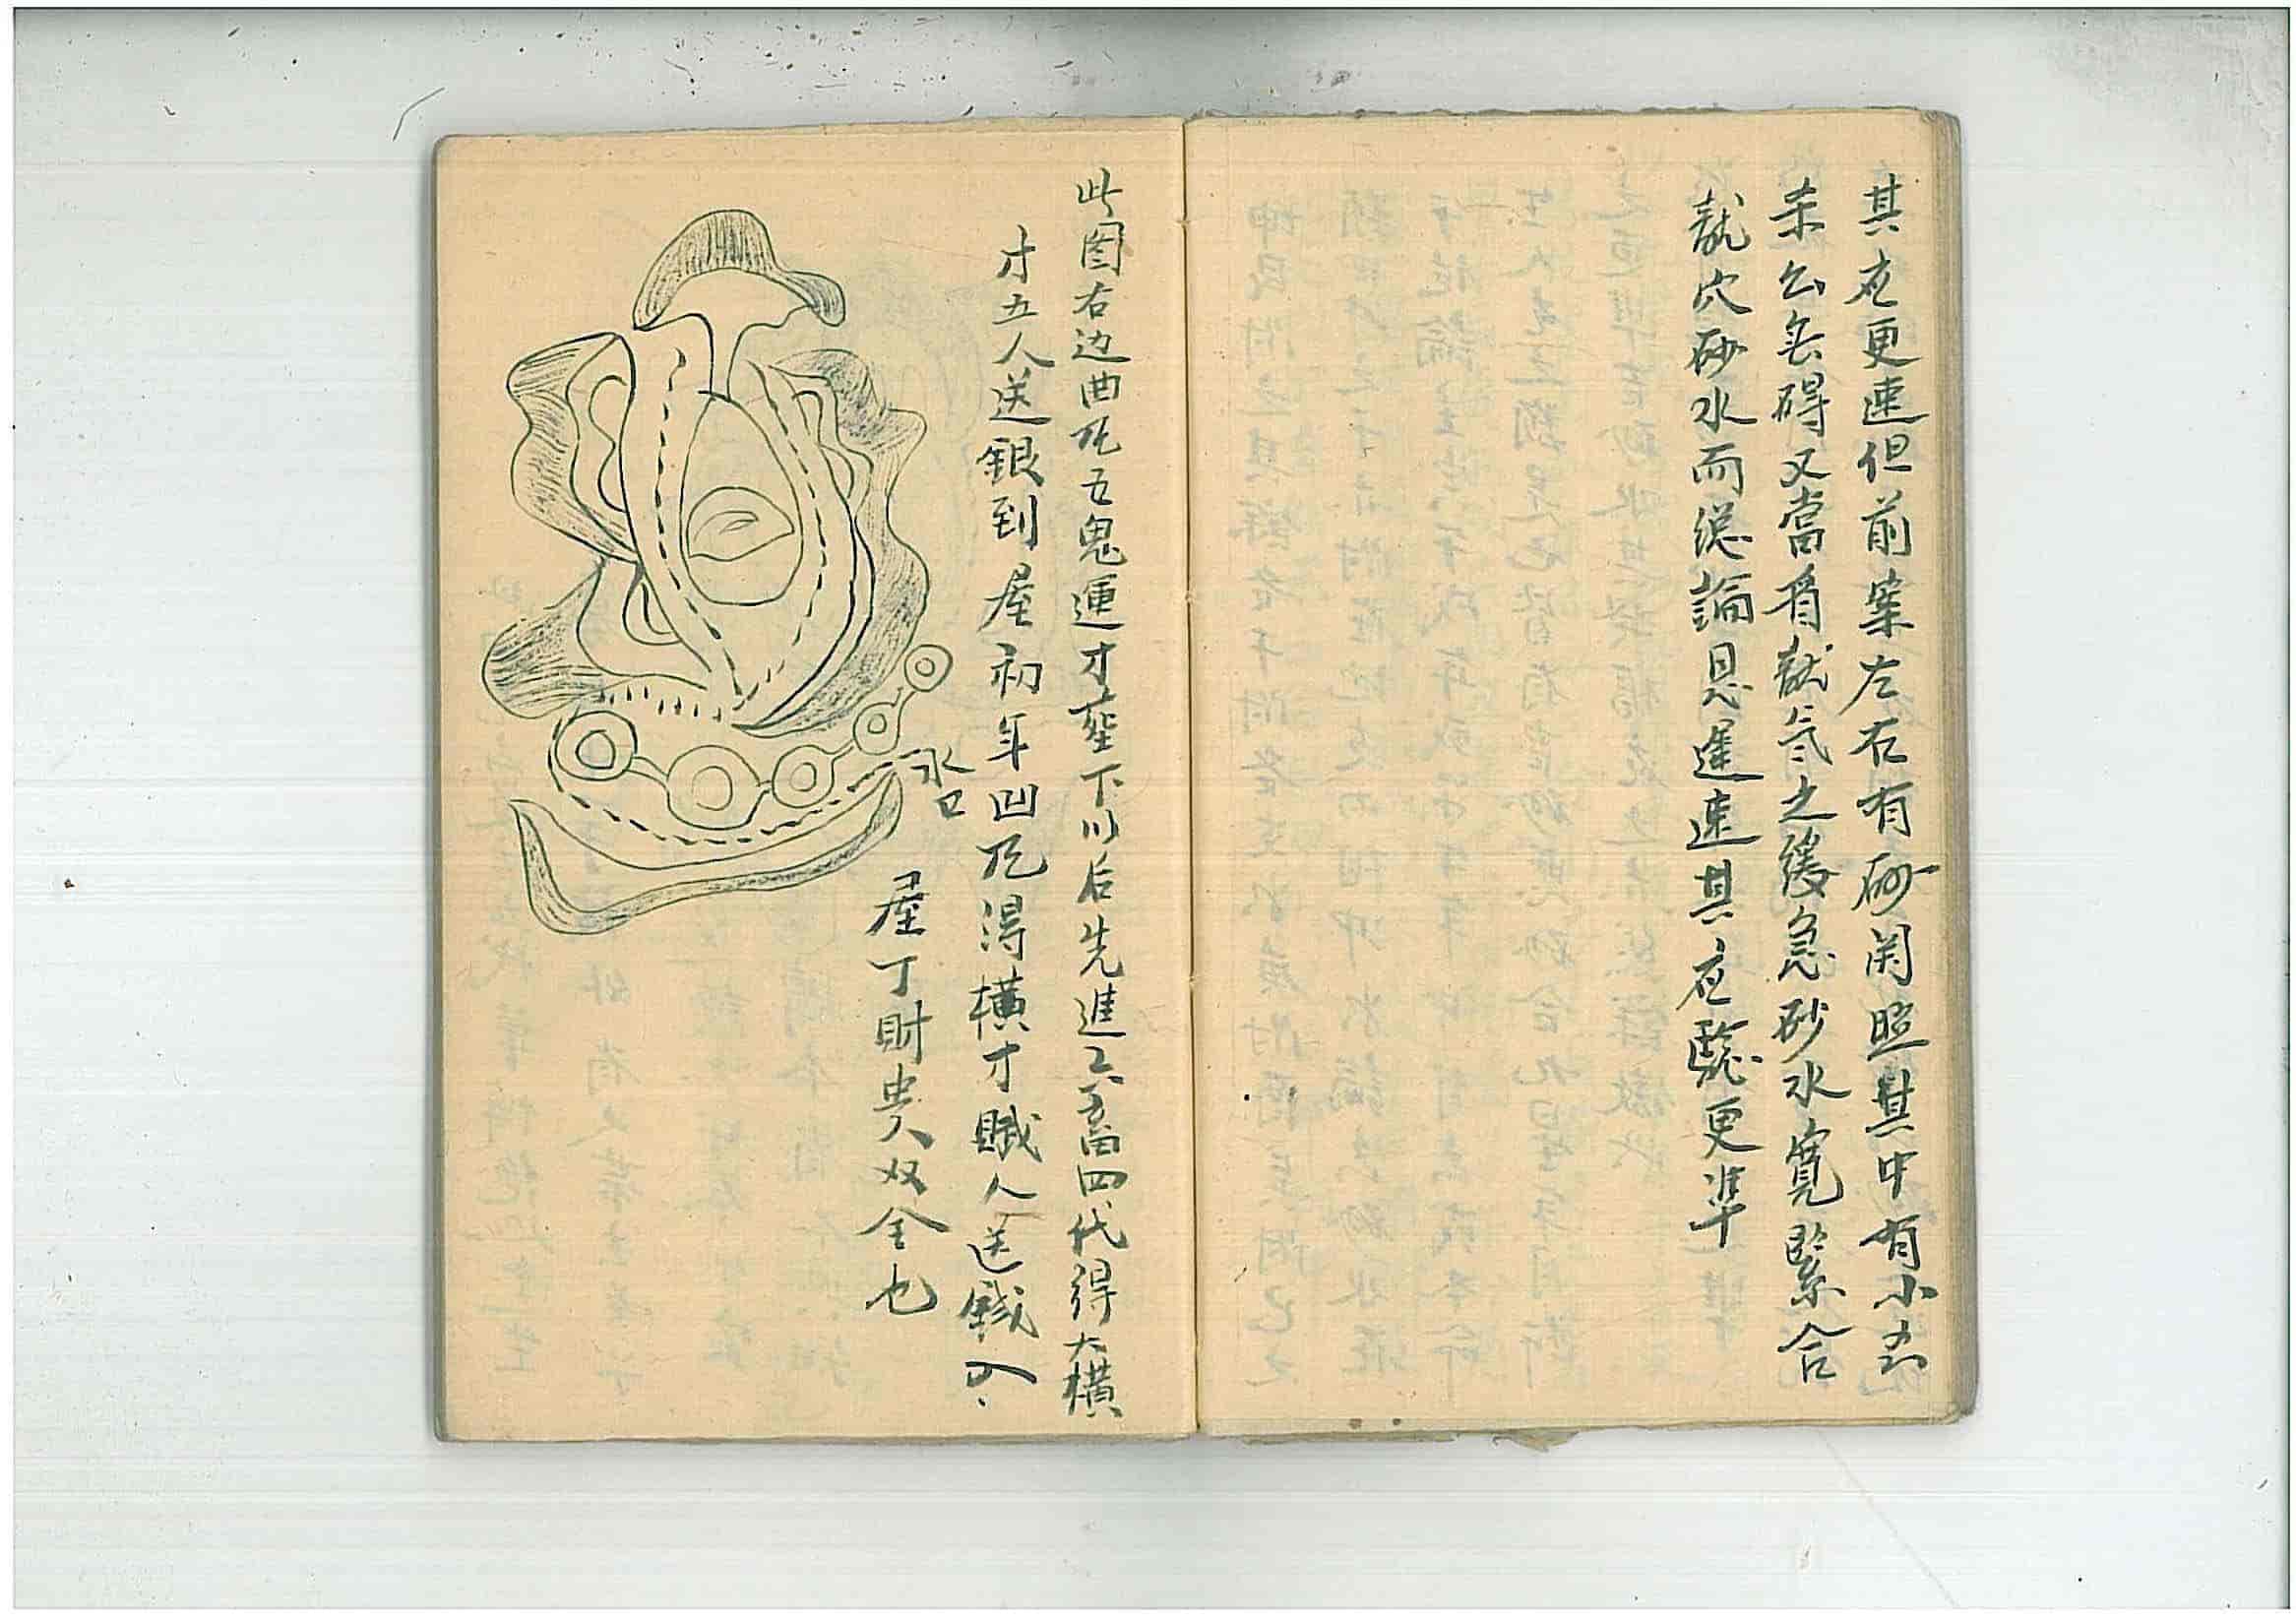 其应更速但前案左右有砂关照其中有小
碍又當看龍气之缓急砂水寬緊合
龍穴砂水而总論恩遲速其应驗更準
此图右边曲死五鬼運才葬下以后先進六畜四代得大横
才五人送銀到屋初年凹死得横才賊人送錢入
屋丁財貴双全也
水口